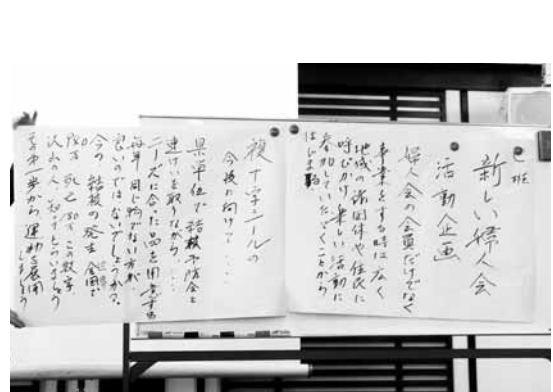 E班
新しい婦人会
活動企画
婦人会の会員だけでなく
事業をする時に広く
地域の諸団体や住民に
呼びかけ楽しい活動に
参加していただくことから
はじまる
複十字シールの
今後に向けて…
県単位で結核予防会と
連けいを取りながら
ニーズに合った品を用意する
毎年同じ物でない方が
良いのではないでしょうか?
今の結核の発生全国で
この数字
沢山の人に知ってもらいましょう
その第一歩から運動を展開
しましょう